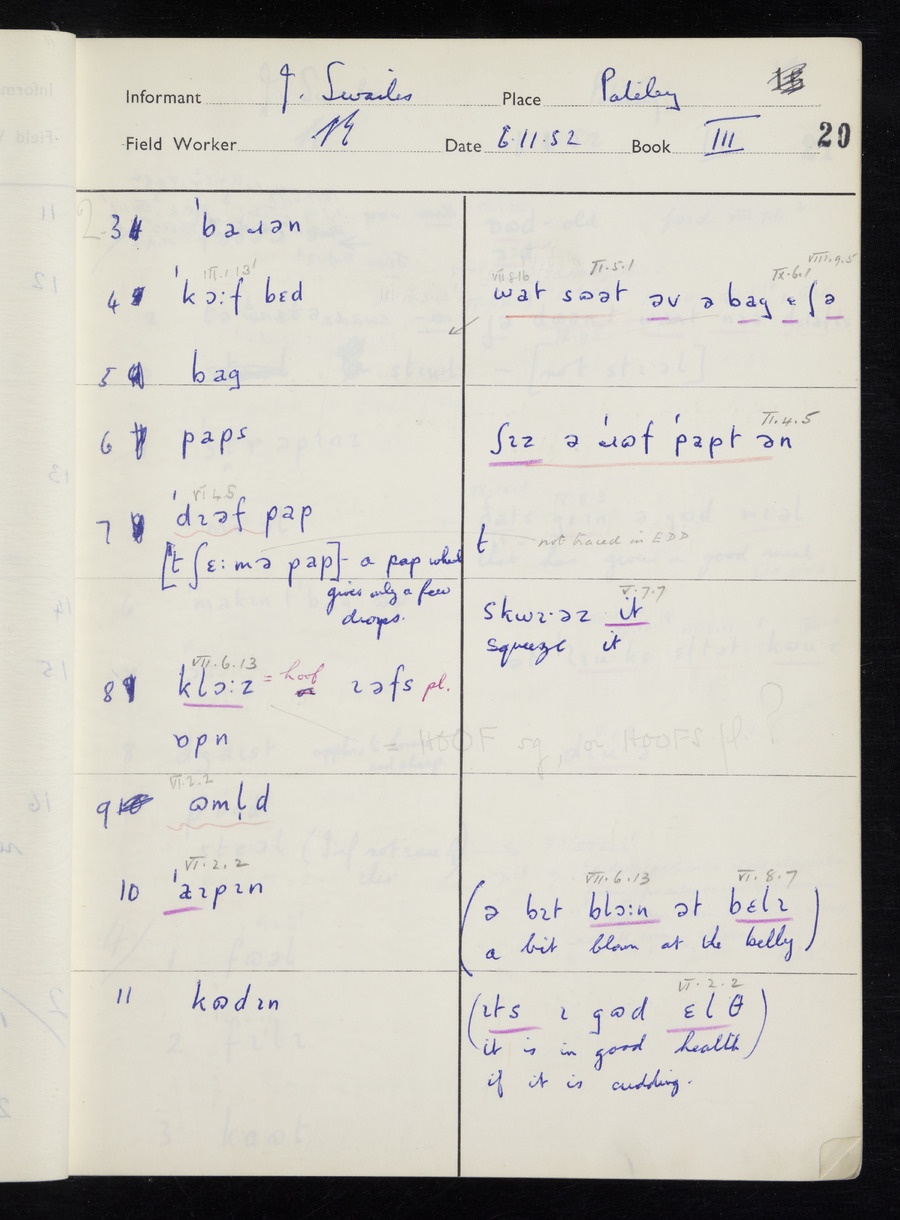 Informant J. Swailes Place Pateley
Field Worker Date 6.11.52 Book III 20
2.3 ˈbaɹən
III.1.13
4 ˈkɔ:f bɛd
VII.8.16 II.5.1 IX.6.1 VIII.9.5
wat sɷət əv ə bag ɛ ʃə
5 bag
6 paps
II.4.5
ʃɪz ə ˈɹɷf ˈpapt ən
VI.4.5
7 ˈdɹəf pap
[tʃɛ:mə pap] - a pap which
gives only a few
drops.
t not traced in EDD
V.7.7
skwɪ·əz it
squeeze it
VII.6.13
8 klɔ:z = hoof ɪəfs pl.
ɒpn
= HOOF sg, or HOOFS pl. ?
VI.2.2
9 ɷml̩d
VI.2.2
10 ˈæɪpɪn
VII.6.13 VI.8.7
(ə bɪt blɔ:n ət bɛlɪ)
a bit blown at the belly
11 kɷdɪn
VI.2.2
(ɪts ɪ gɷd ɛlθ)
it is in good health
if it is cudding.